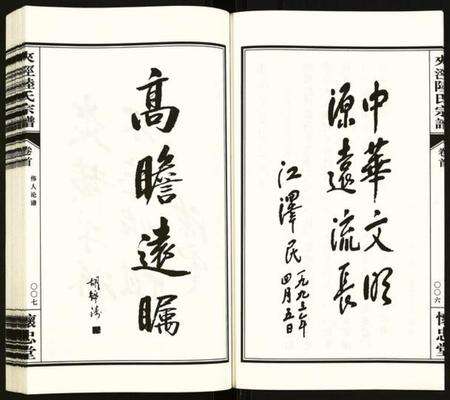 夾涇陸氏宗譜
卷首
〇〇六
懷忠堂
中華文明
源遠流長
江澤民
一九九三年
四月五日
高瞻遠矚
胡錦濤
夾涇陸氏宗譜
卷首
伟人论谱
〇〇七
懷忠堂